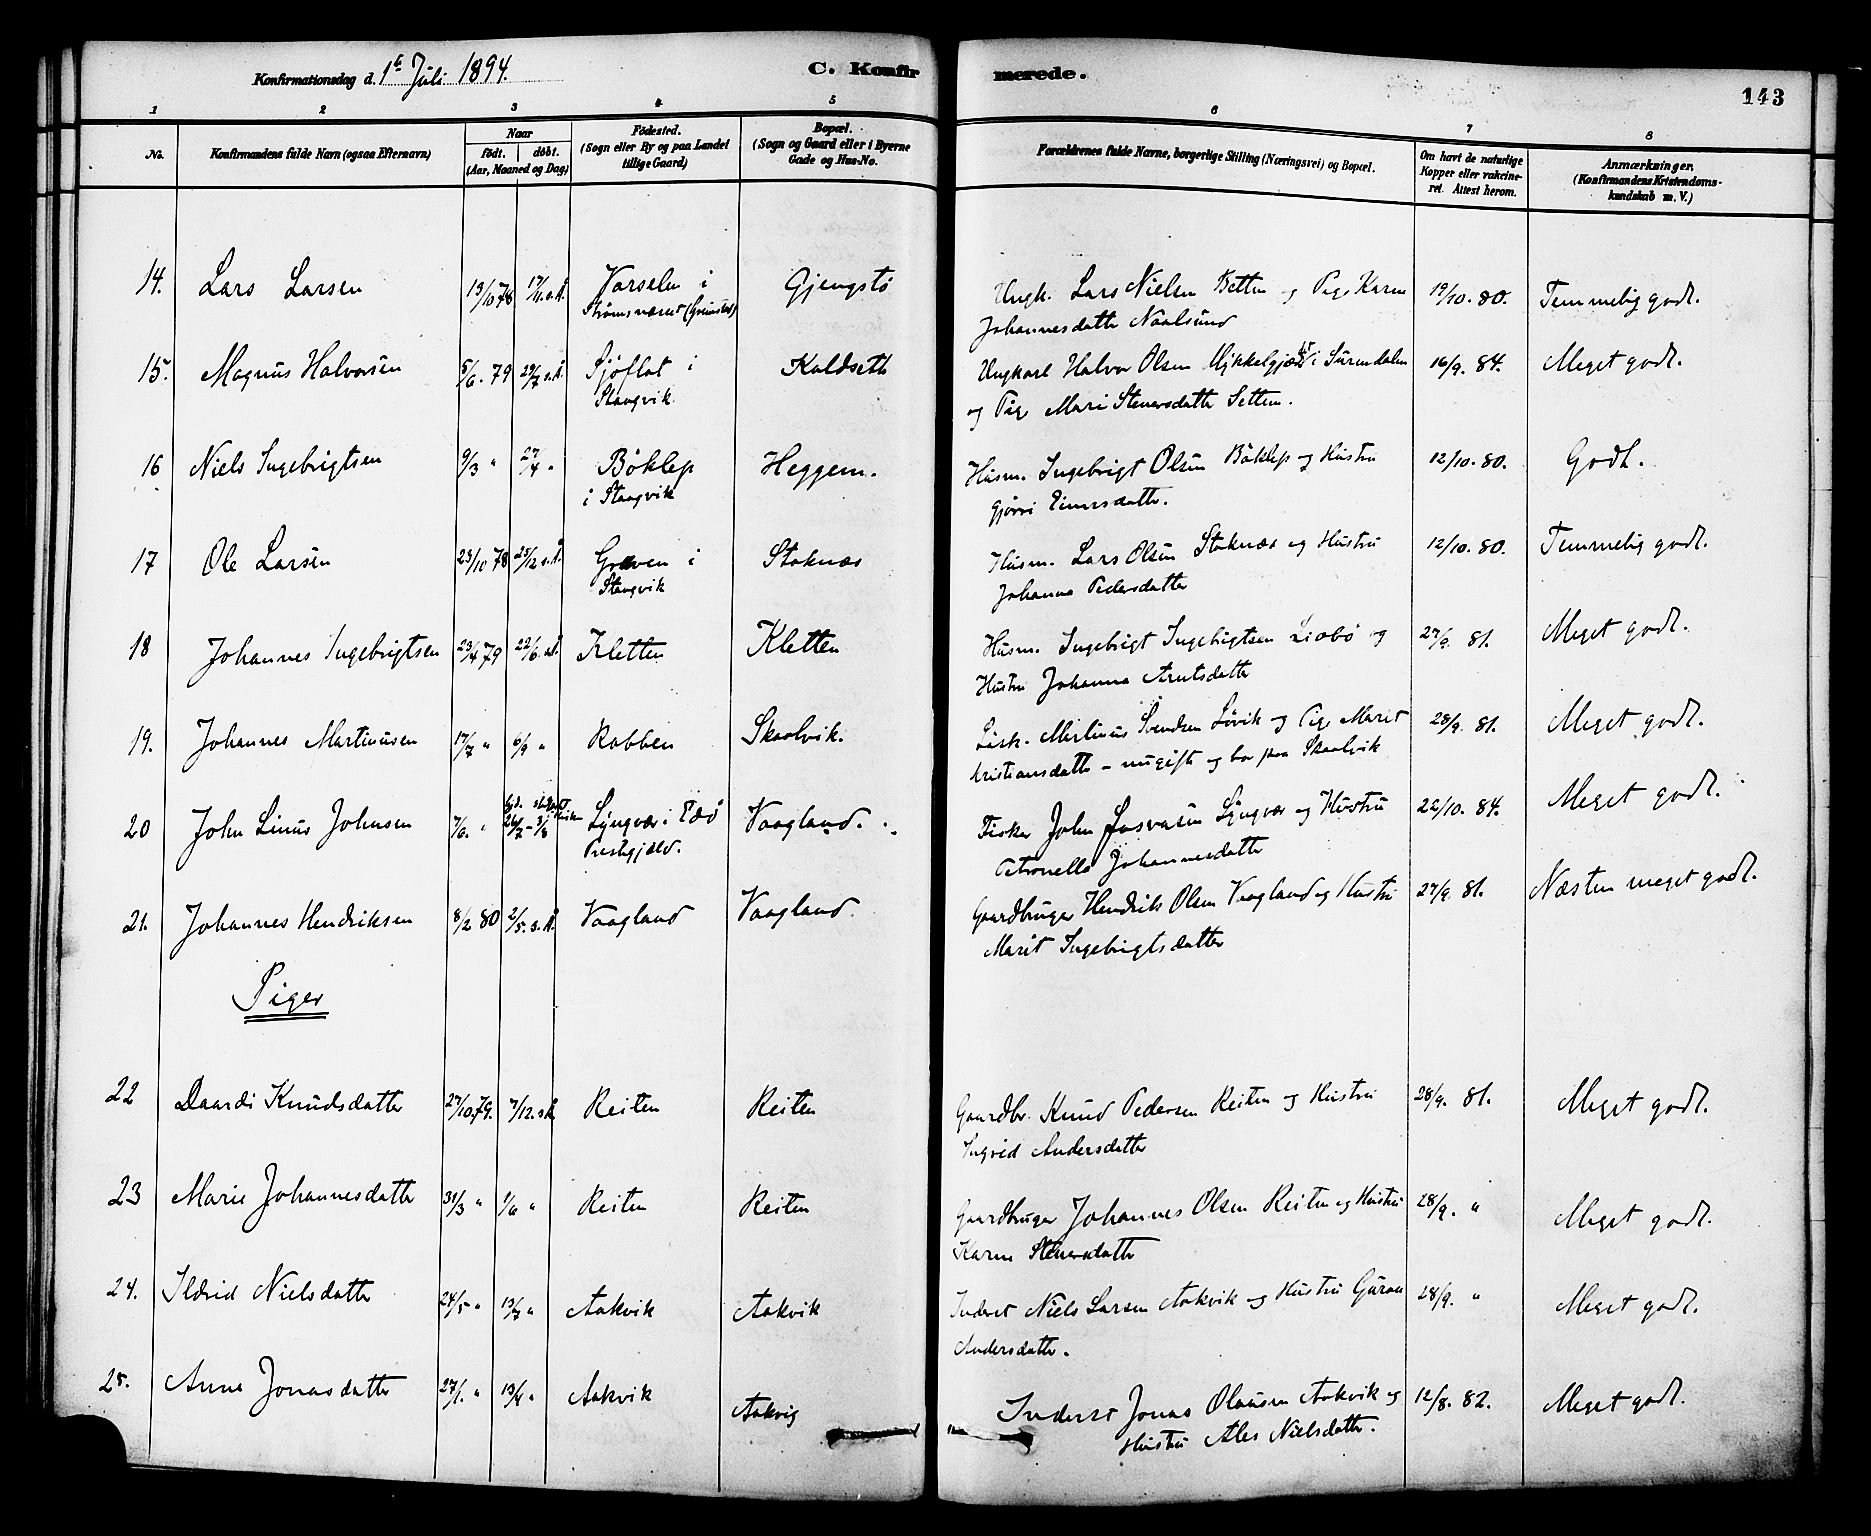 Konfirmationsdag d. 1ste Juli 1894.
C. Konfirmerede.
143
1 2 3 4 5 6 7 8
No.
Konfirmandens fulde Navn (ogsaa Efternavn)
Naar
født. døbt.
(Aar, Maaned og Dag)
Fødested.
(Sogn eller By og paa Landet
tillige Gaard)
Bopæl.
(Sogn og Gaard eller i Byerne
Gade og Hus-No.
Forældrenes fulde Navne, borgerlige Stilling (Næringsvei) og Bopæl.
Om havt de naturlige
Kopper eller vakcine-
ret. Attest herom.
Anmærkninger.
(Konfirmandens Kristendoms-
kundskab m. V.)
14. Lars Larsen 13/10 78 17/11 s.A. Varselen i Gjengstø Ungk. Lars Nielsen Betten og Pige Karen 19/10. 80. Temmelig godt.
Strømsværet (Grimstad) Johannesdatter Naalsund
15. Magnus Halvorsen 5/6. 79 29/7 s.A. Sjøflot i Koldseth Ungkarl Halvor Olsen Mykkelgjæt i Surendalen 16/9. 84. Meget godt.
Stangvik og Pige Mari Steneresdatter Settem.
16 Niels Ingebrigtsen 9/3 " 27/4 " Bøklep Heggem. Husm. Ingebrigt Olsen Bøklep og Hustru 12/10. 80. Godt.
i Stangvik Gjørri Einersdatter.
17 Ole Larsen 23/10 78 25/12 s.A. Graven i Stoknæs Husm. Lars Olsen Stoknæs og Hustru 12/10. 80. Temmelig godt.
Stangvik Johanna Pedersdatter
18 Johannes Ingebrigtsen 23/4 79 22/6. s.A. Kletten Kletten Husm. Ingebrigt Ingebrigtsen Liabø og 27/9. 81. Meget godt.
Hustru Johanna Arntsdatter
19. Johannes Martinusen 17/7 " 6/9 " Robben Skaalvik. Martinus Svendsen Løvik og Pige Marit 28/9. 81. Meget godt.
Kristiansdatter – nugift og bor paa Skaalvik
20 John Linus Johnsen 7/6. " 26/7 – 3/8 Lyngvær i Edø Vaagland. Fisker John Lyngvær og Hustru 22/10. 84. Meget godt.
Prestgjæld. Petronelle Johannesdatter
21. Johannes Hendriksen 8/2 80 2/5. s.A. Vaagland Vaagland. Gaardbruger Hendrik Olsen Vaagland og Hustru 27/9. 81. Næsten meget godt.
Marit Ingebrigtsdatter
Piger
22 Daardi Knudsdatter 27/10 79. 7/12. s.A. Reiten Reiten Gaardbr. Knud Pedersen Reiten og Hustru 28/9. 81. Meget godt.
Ingrid Andersdatter
23 Marie Johannesdatter 31/3 " 1/6 " Reiten Reiten Gaardbruger Johannes Olsen Reiten og Hustru 28/9. " Meget godt.
Karen Stenersdatter
24. Ildrid Nielsdatter 24/5 " 13/7 " Aakvik Aakvik Inderst Niels Larsen Aakvik og Hustru Guroe 28/9. " Meget godt.
Andersdatter.
25. Anne Jonasdatter 27/1. " 13/4 " Aakvik Aakvig Inderst Jonas Olausen Aakvik og 12/8. 82. Meget godt.
Hustru Ales Nielsdatter.